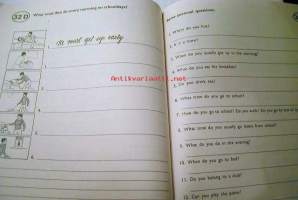 32 D What must Ben do every morning on schooldays?
1. He must get up early
2.
3.
4.
5.
6.
Antikvariaatti.net
Answer personal questions.
1. Where do you live?
2. time?
3. When do you usually get up in the morning?
4. What do you eat for breakfast?
5. Do you drink tea?
6. What time do you go to school?
7. How do you go to school? Do you walk? Do you go by
8. What time do you usually go home from school?
9. What do you do in the evening?
10. When do you go to bed?
11. Do you belong to a club?
12. Can you play the piano?